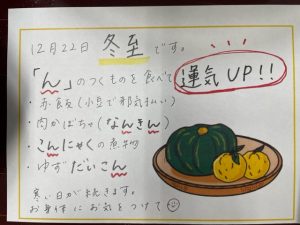 12月22日 冬至 です。
「ん」のつくものを食べて
運気UP!!
・赤飯(小豆で邪気払い)
・肉かぼちゃ(なんきん)
・こんにゃくの煮物
・ゆずだいこん
寒い日が続きます。
お身体にお気をつけて